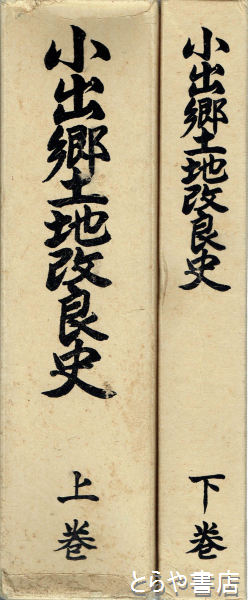 小出郷土地改良史
上巻
小出郷土地改良史
下巻
とらや書店